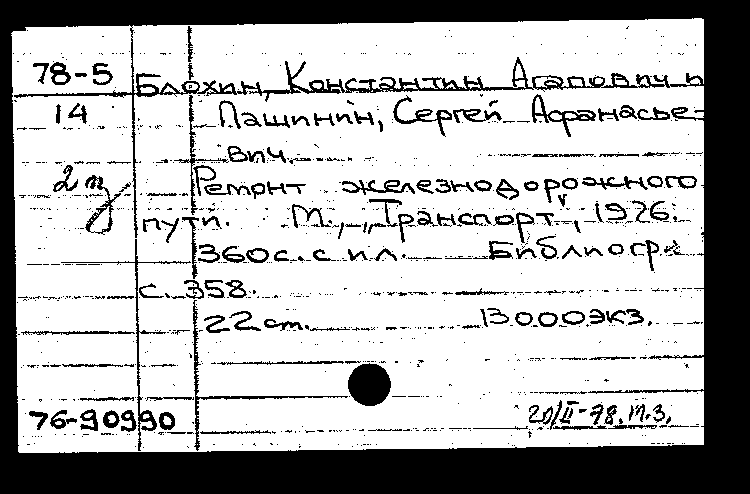 78-5 Блохин, Константин Агапович и
14 Пашинин, Сергей Афанасье-
вич.
2 т Ремонт железнодорожного
пути. М., „Транспорт", 1976.
360 с. с ил. Библиогр.:
с. 358.
22 см. 13000 экз.
76-90990 20/II-78. М.З.